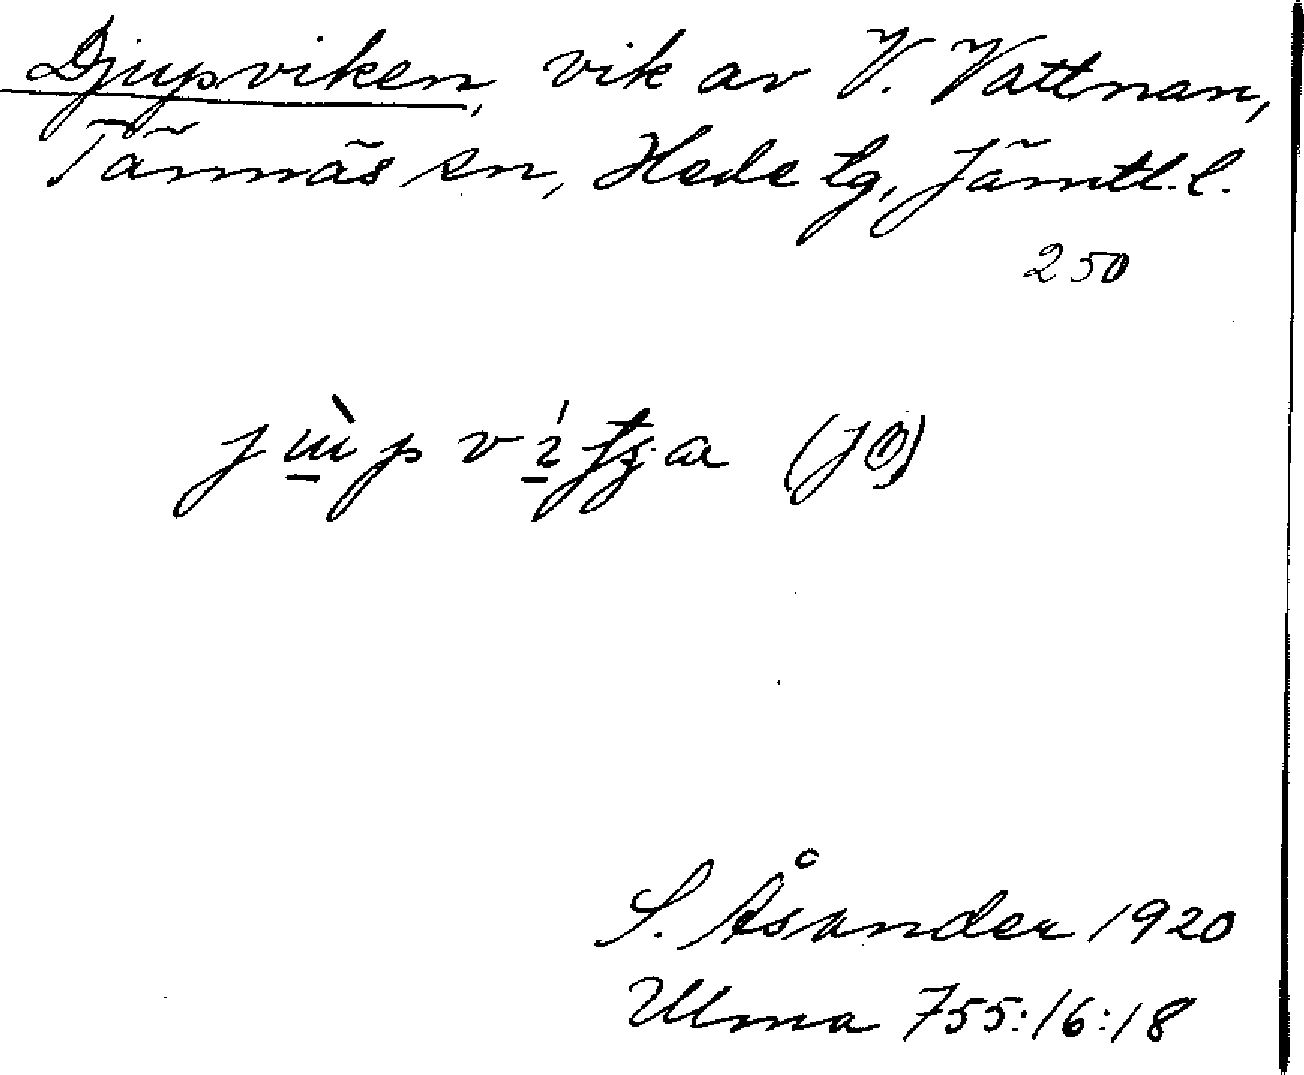 Djupviken, vik av V. Vattnan,
Tännäs sn, Hede tg, Jämtl. l.
250
S. Åsander 1920
Ulma 755:16:18